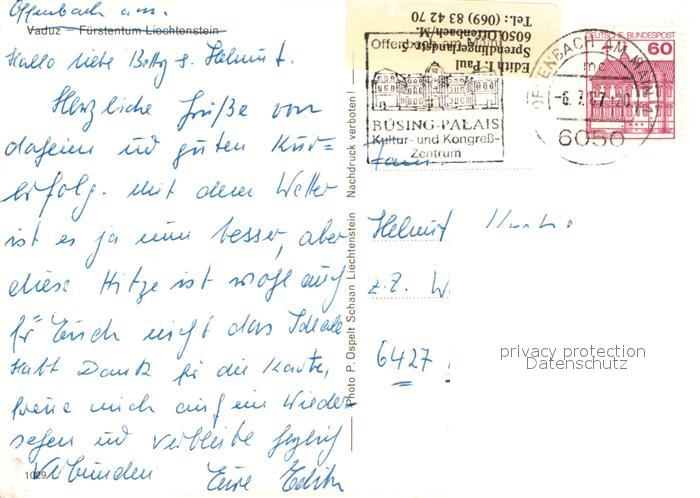 Offenbach a.M.
Vaduz – Fürstentum Liechtenstein
Hallo liebe Betty & Helmut.
Herzliche Grüße von
daheim und guten Kur=
erfolg. Mit dem Wetter
ist es ja nun besser, aber
diese Hitze ist wohl auch
für Euch nicht das Ideale
Habt Dank für die Karte,
freue mich auf ein Wieder=
sehen und verbleibe herzlich
verbunden Eure Edith
1029
Photo P. Ospelt Schaan Liechtenstein Nachdruck verboten!
Edith I. Paul
Sprendlingerlandstr.
6050 Offenbach/M.
Tel.: (069) 83 42 70
BÜSING-PALAIS
Kultur- und Kongreß-
Zentrum
OFFENBACH AM MAIN
mc
-6.7.87-20
6050
DEUTSCHE BUNDESPOST
60
Fam.
Helmut
z.Z. W
6427
privacy protection
Datenschutz